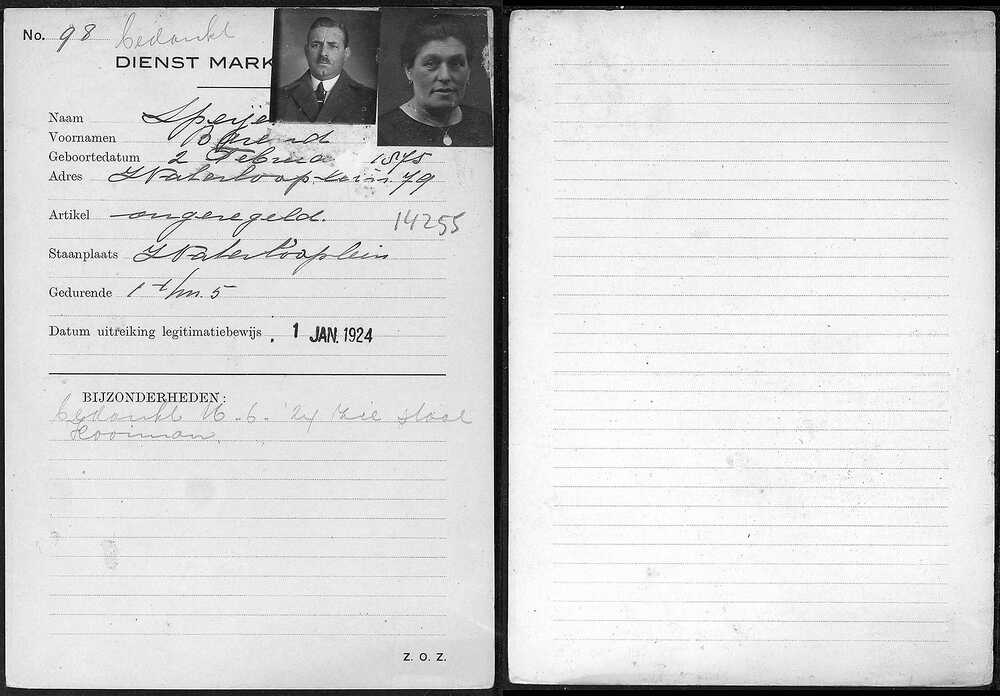 No. 98 bedankt
DIENST MARK
Naam Speije
Voornamen Barend
Geboortedatum 2 Februa 1875
Adres Waterlooplein 79
Artikel ongeregeld. 14255
Staanplaats Waterlooplein
Gedurende 1 t/m. 5
Datum uitreiking legitimatiebewijs . 1 JAN. 1924
BIJZONDERHEDEN:
bedankt 16-6-'24 Zie staat
Kooiman
Z. O. Z.